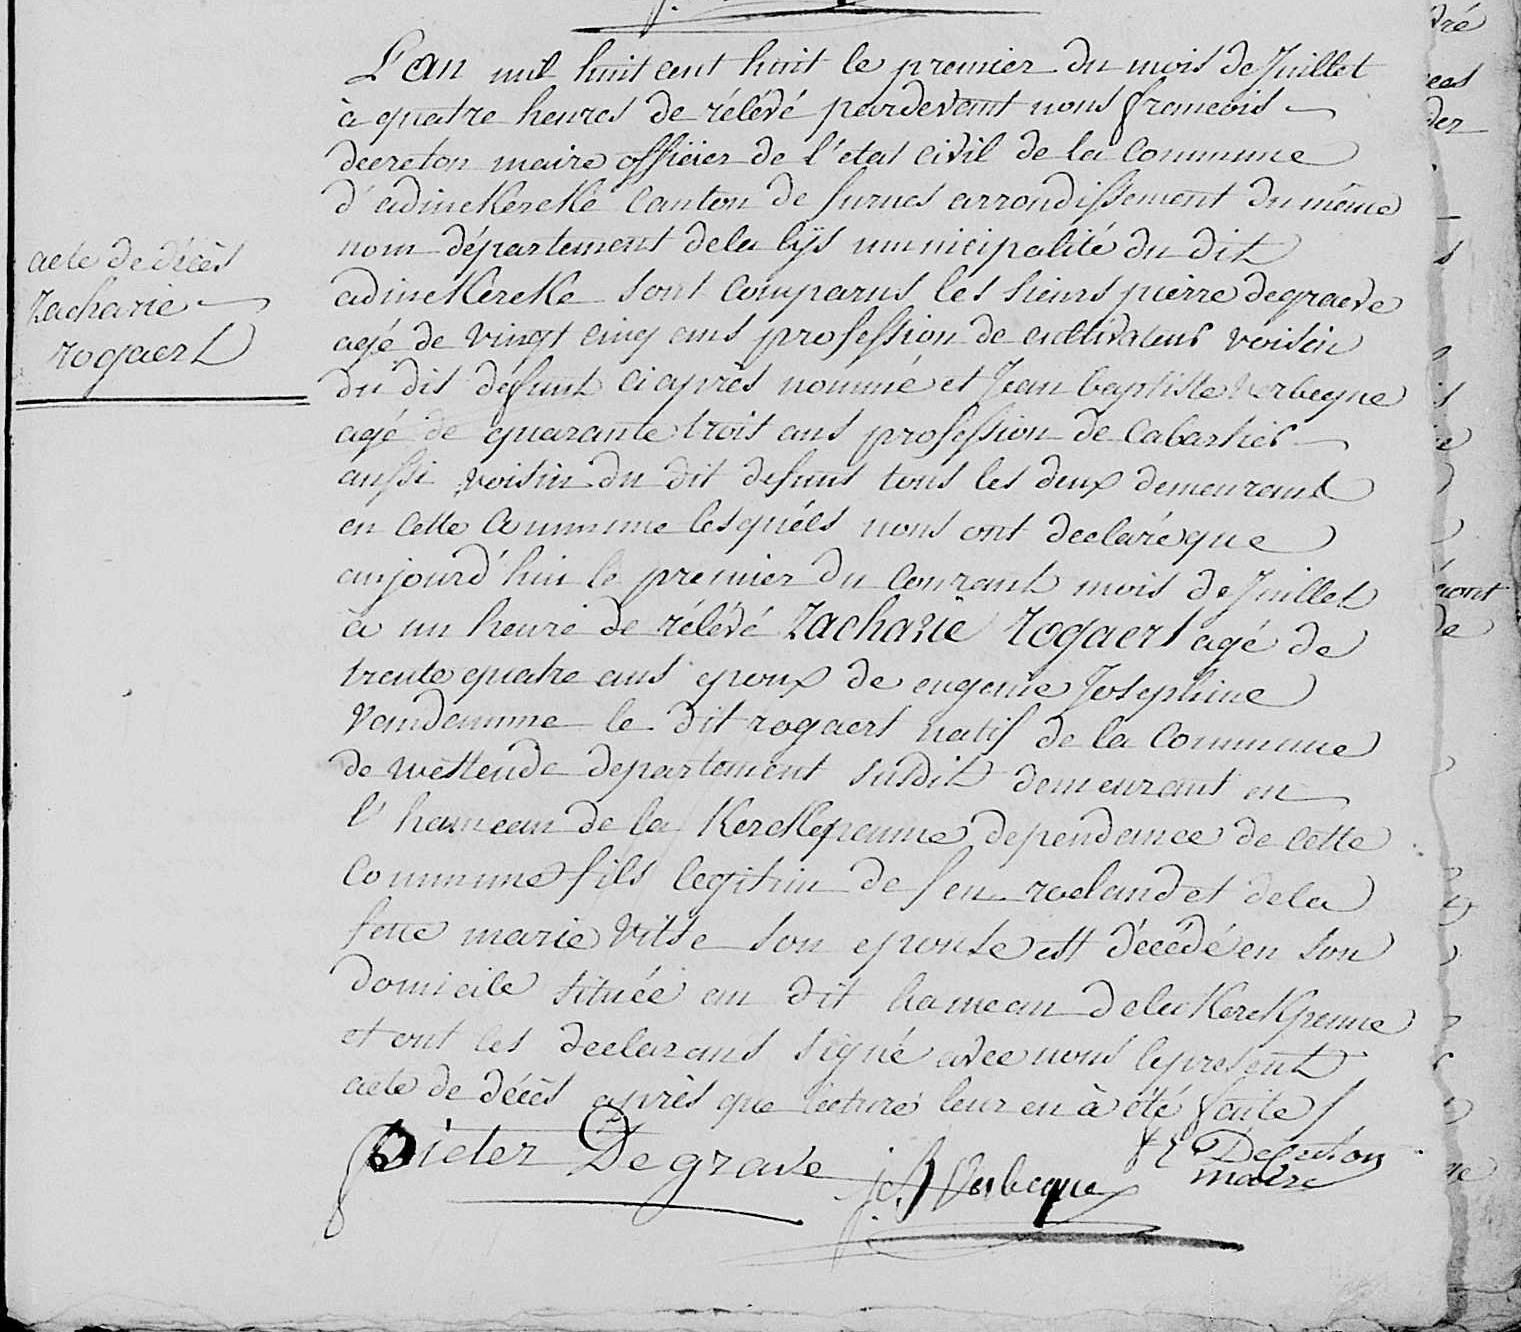 L'an mil huit cent huit le premier du mois de Juillet
à quatre heures de rélévé pardevant nous francois
decreton maire officier de l'etat civil de la Commune
d'adinckercke Canton de furnes arrondissement du même
nom département de la lÿs municipalité du dit
adinckercke sont Comparus les sieurs pierre degraeve
agé de vingt cinq ans profession de cultivateur voisin
du dit défunt ci après nommé et Jean baptiste verbeque
agé de quarante trois ans profession de Cabartier
aussi voisin du dit defunt tous les deux demeurant
en Cette Commune lesquéls nous ont declaré que
aujourd'hui le premier du Courant mois de Juillet
à un heure de rélévé Zacharie rogaert agé de
trente quatre ans epoux de eugenie Josephine
Vandamme le dit rogaert natif de la Commune
de westende departement susdit demeurant en
l'hameau de la Kerckepanne dependance de cette
Commune fils legitim de feu roeland et de la
feue marie Vilse son epouse est décédé en son
domicile située au dit hameau de la Kerckpanne
et ont les declarans signé avec nous le present
acte de décès après que lecture leur en à été faite /
acte de décès
Zacharie
rogaert
pieter Degrave
j. B Verbeque
fr Decreton
maire